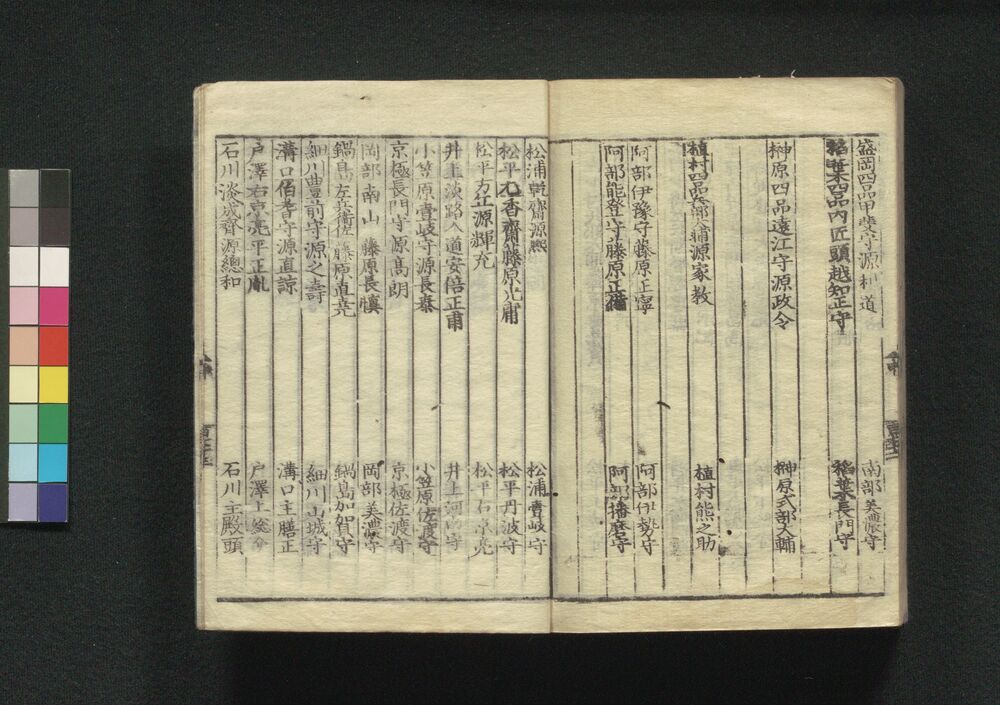 盛岡四品甲斐守源利道 南部美濃守
稲葉四品内匠頭越知正守 稲葉長門守
榊原四品遠江守源政令 榊原式部大輔
植村四品兵部大輔源家教 植村熊之助
阿部伊豫守藤原正寧 阿部伊勢守
阿部能登守藤原正備 阿部播磨守
松浦乾齋源熈 松浦壹岐守
松平九香齋藤原光庸 松平丹波守
松平右京源輝充 松平右京亮
井上淡路入道安倍正甫 井上河内守
小笠原壹岐守源長泰 小笠原佐渡守
京極長門守源高朗 京極佐渡守
岡部南山藤原長慎 岡部美濃守
鍋島左兵衛佐藤原直堯 鍋島加賀守
細川豊前守源之壽 細川山城守
溝口伯耆守源直諒 溝口主膳正
戸澤右京亮平正胤 戸澤上総介
石川淡成齋源總和 石川主殿頭